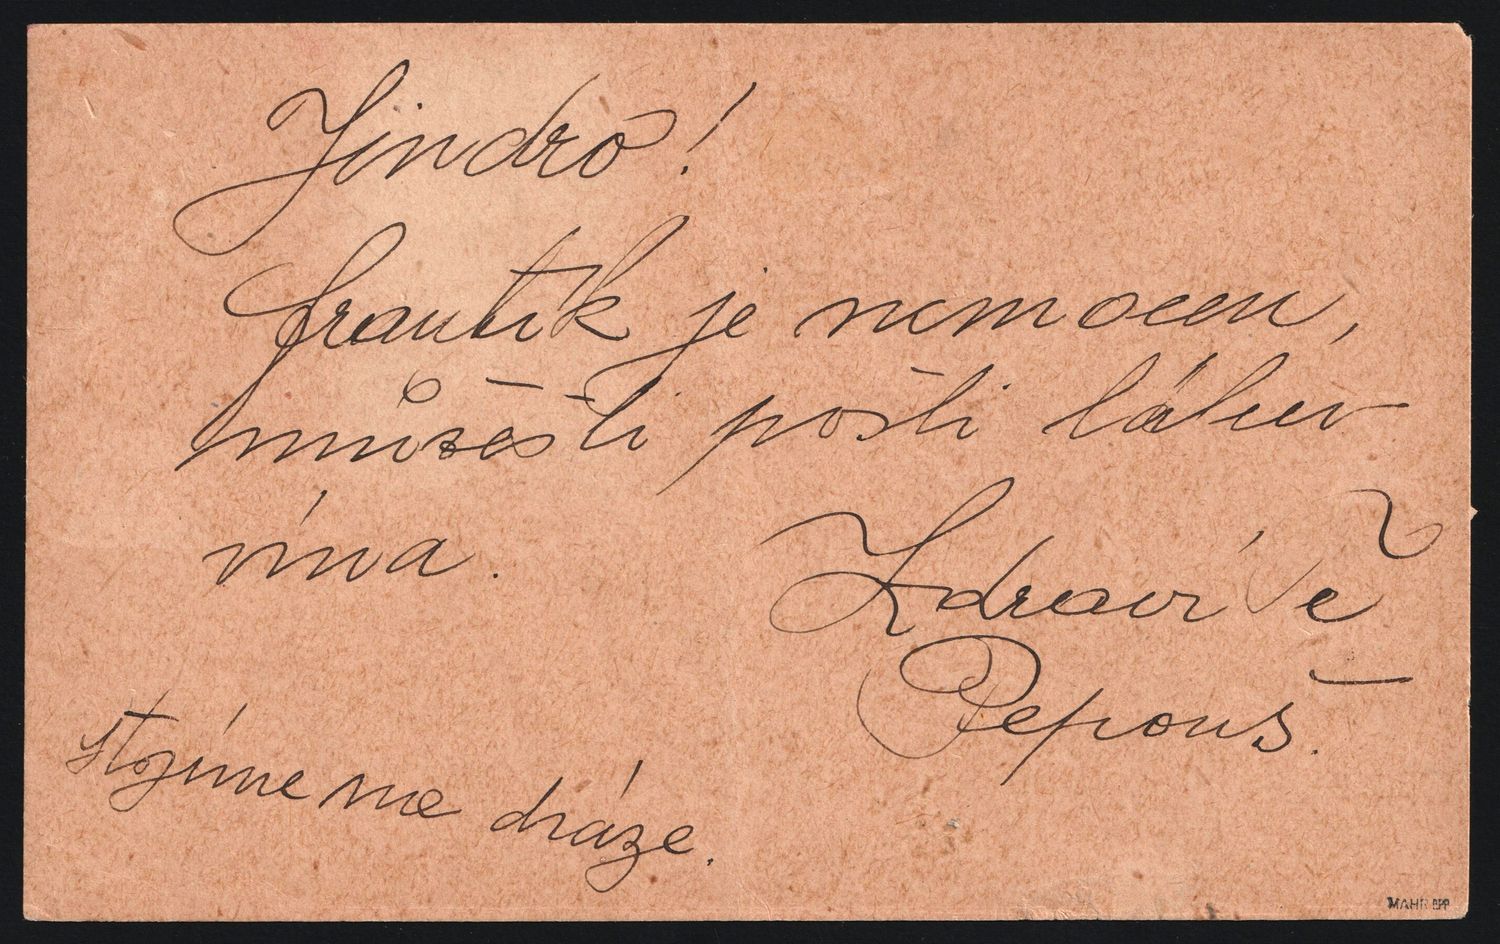 Jindro!
Frantík je nemocen,
můžeš-li pošli láhev
vína.
Zdraví Tě
Pepouš.
Stojíme na dráze.
MAHR BPP